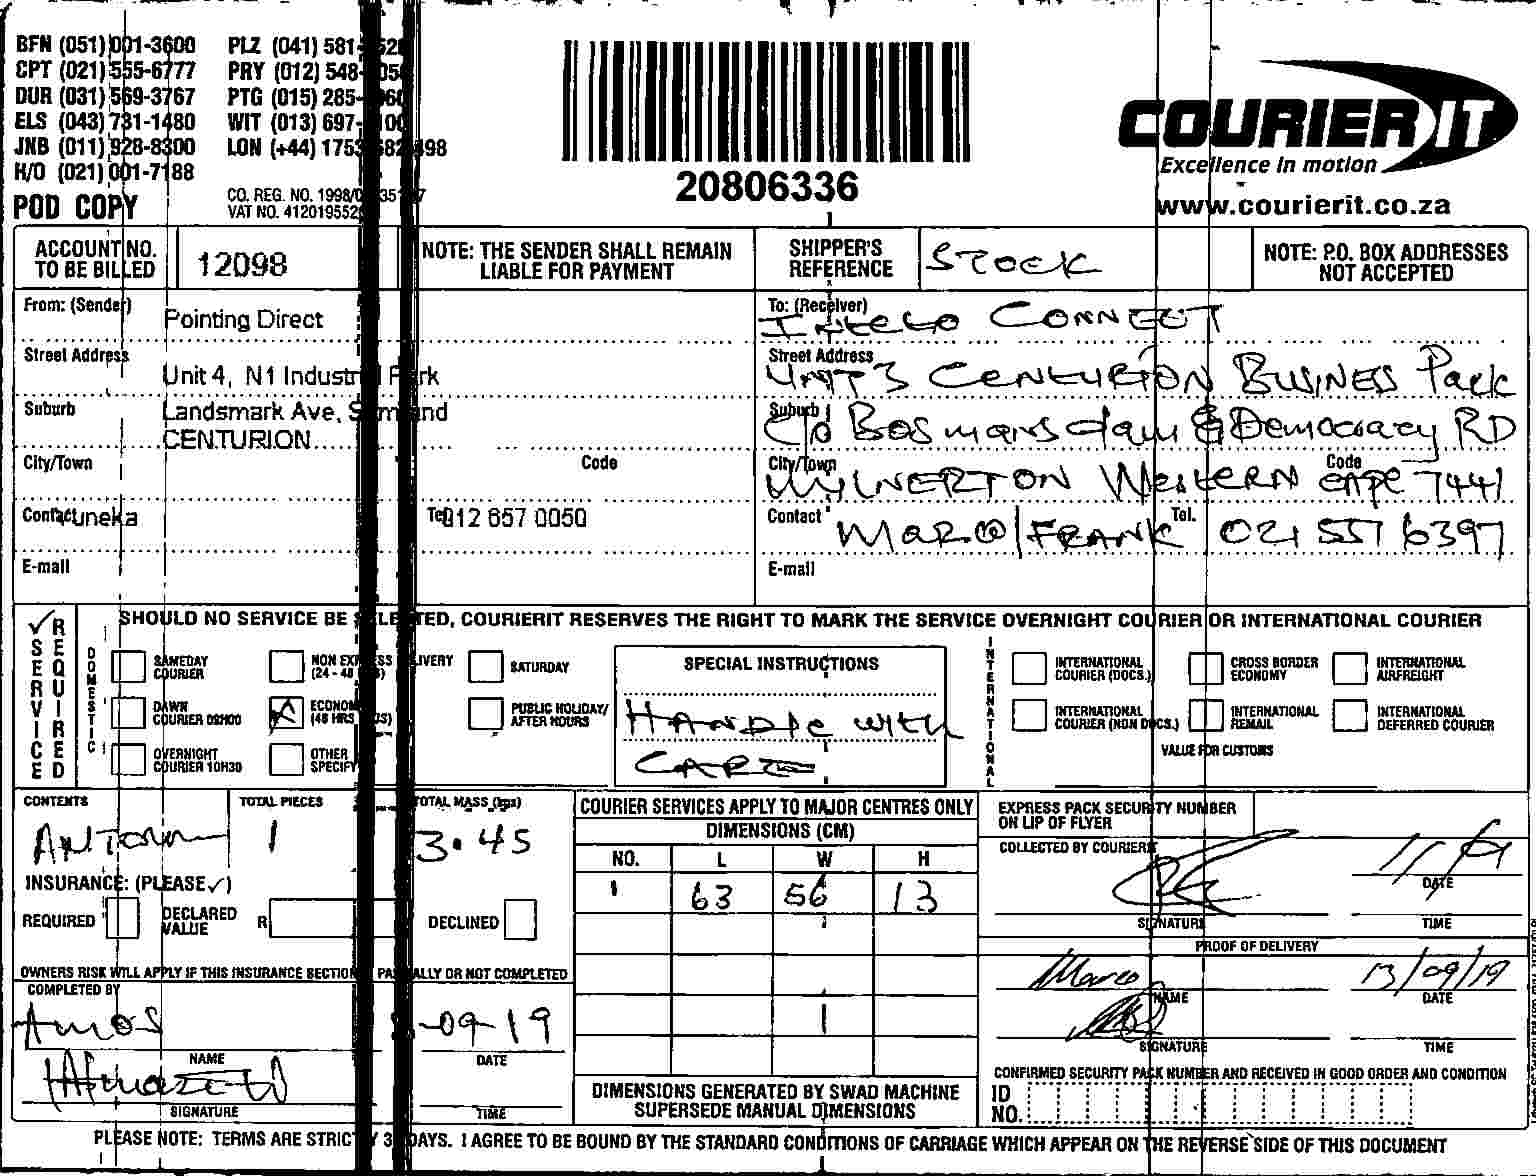 BFN (051) 001-3600 PLZ (041) 581-
CPT (021) 555-6777 PRY (012) 548-
DUR (031) 569-3767 PTG (015) 285-
ELS (043) 731-1480 WIT (013) 697-
JNB (011) 928-8300 LON (+44) 1753
H/O (021) 001-7188
POD COPY
CO. REG. NO. 1998/
VAT NO. 412019552
20806336
COURIER IT
Excellence in motion
www.courierit.co.za
ACCOUNT NO. TO BE BILLED 12098
NOTE: THE SENDER SHALL REMAIN LIABLE FOR PAYMENT
SHIPPER'S REFERENCE STOCK
NOTE: P.O. BOX ADDRESSES NOT ACCEPTED
From: (Sender) Pointing Direct
Street Address Unit 4, N1 Industrial Park
Suburb Landsmark Ave,
CENTURION
City/Town Code
Contact uneka Tel 012 657 0050
E-mail
To: (Receiver) CONNECT
Street Address UNIT 3 CENTURION BUSINESS Park
Suburb c/o Bosmansdam & Democracy RD
City/Town MILNERTON WESTERN CAPE Code 7441
Contact MARCO/FRANK Tel. 021 551 6397
E-mail
SERVICE REQUIRED
SHOULD NO SERVICE BE SELECTED, COURIERIT RESERVES THE RIGHT TO MARK THE SERVICE OVERNIGHT COURIER OR INTERNATIONAL COURIER
DOMESTIC
SAMEDAY COURIER
NON EXPRESS DELIVERY (24 - 48 HRS)
SATURDAY
DAWN COURIER 09H00
ECONOMY (48 HRS PLUS)
PUBLIC HOLIDAY/ AFTER HOURS
OVERNIGHT COURIER 10H30
OTHER SPECIFY
SPECIAL INSTRUCTIONS
HANDLE WITH
CARE
INTERNATIONAL
INTERNATIONAL COURIER (DOCS.)
CROSS BORDER ECONOMY
INTERNATIONAL AIRFREIGHT
INTERNATIONAL COURIER (NON DOCS.)
INTERNATIONAL REMAIL
INTERNATIONAL DEFERRED COURIER
VALUE FOR CUSTOMS
CONTENTS
TOTAL PIECES 1
TOTAL MASS (kgs) 3.45
INSURANCE: (PLEASE ✓)
REQUIRED DECLARED VALUE R DECLINED
OWNERS RISK WILL APPLY IF THIS INSURANCE SECTION PARTIALLY OR NOT COMPLETED
COMPLETED BY
AMOS -09-19
NAME DATE
SIGNATURE TIME
COURIER SERVICES APPLY TO MAJOR CENTRES ONLY
DIMENSIONS (CM)
NO. L W H
1 63 56 13
DIMENSIONS GENERATED BY SWAD MACHINE SUPERSEDE MANUAL DIMENSIONS
EXPRESS PACK SECURITY NUMBER ON LIP OF FLYER
COLLECTED BY COURIERIT
DATE
SIGNATURE TIME
PROOF OF DELIVERY
Marco 13/09/19
NAME DATE
SIGNATURE TIME
CONFIRMED SECURITY PACK NUMBER AND RECEIVED IN GOOD ORDER AND CONDITION
ID NO.
PLEASE NOTE: TERMS ARE STRICTLY 30 DAYS. I AGREE TO BE BOUND BY THE STANDARD CONDITIONS OF CARRIAGE WHICH APPEAR ON THE REVERSE SIDE OF THIS DOCUMENT